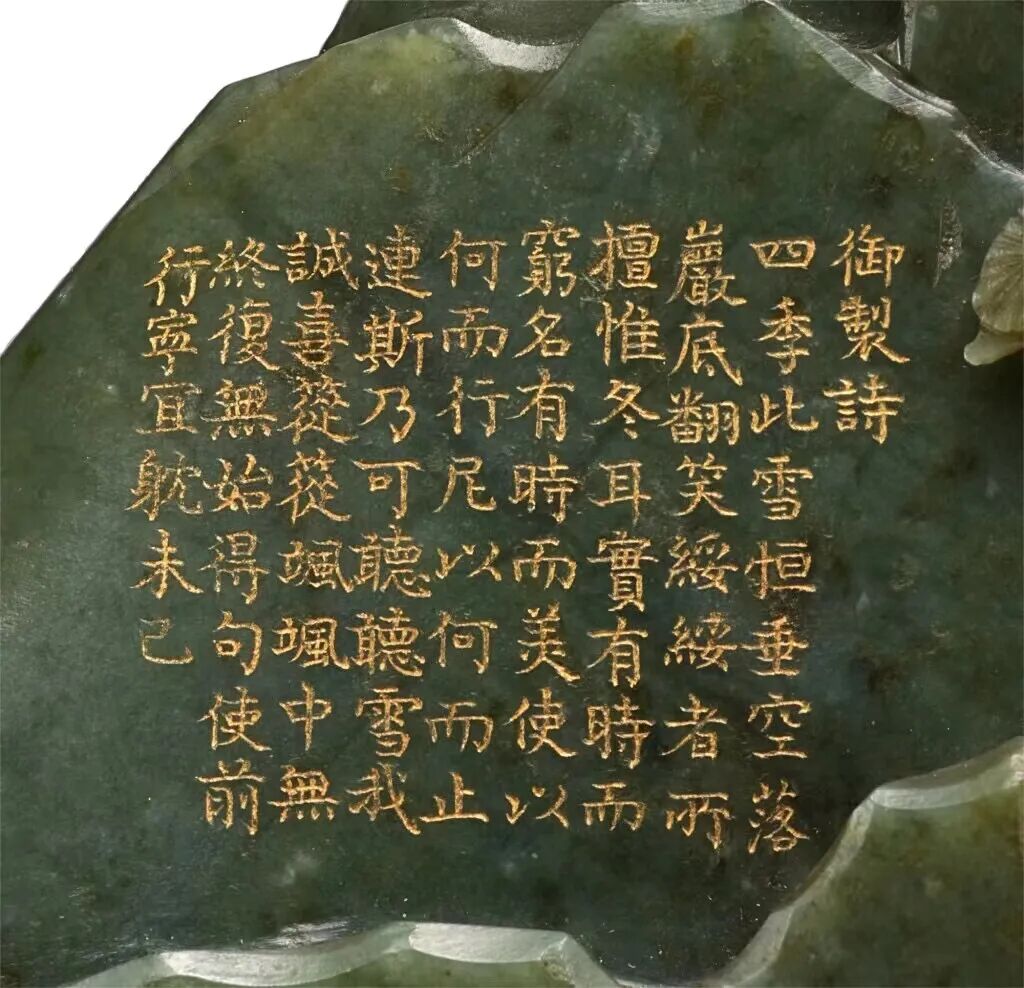 御製詩
四季此雪恒垂空落
巖底翻笑綏綏者所
擅惟冬耳實有時而
窮名有時而美使以
何而行尼以何而止
連斯乃可聽聽雪我
誠喜蓯蓯颯颯中無
終復無始得句使前
行寕宜躭未己